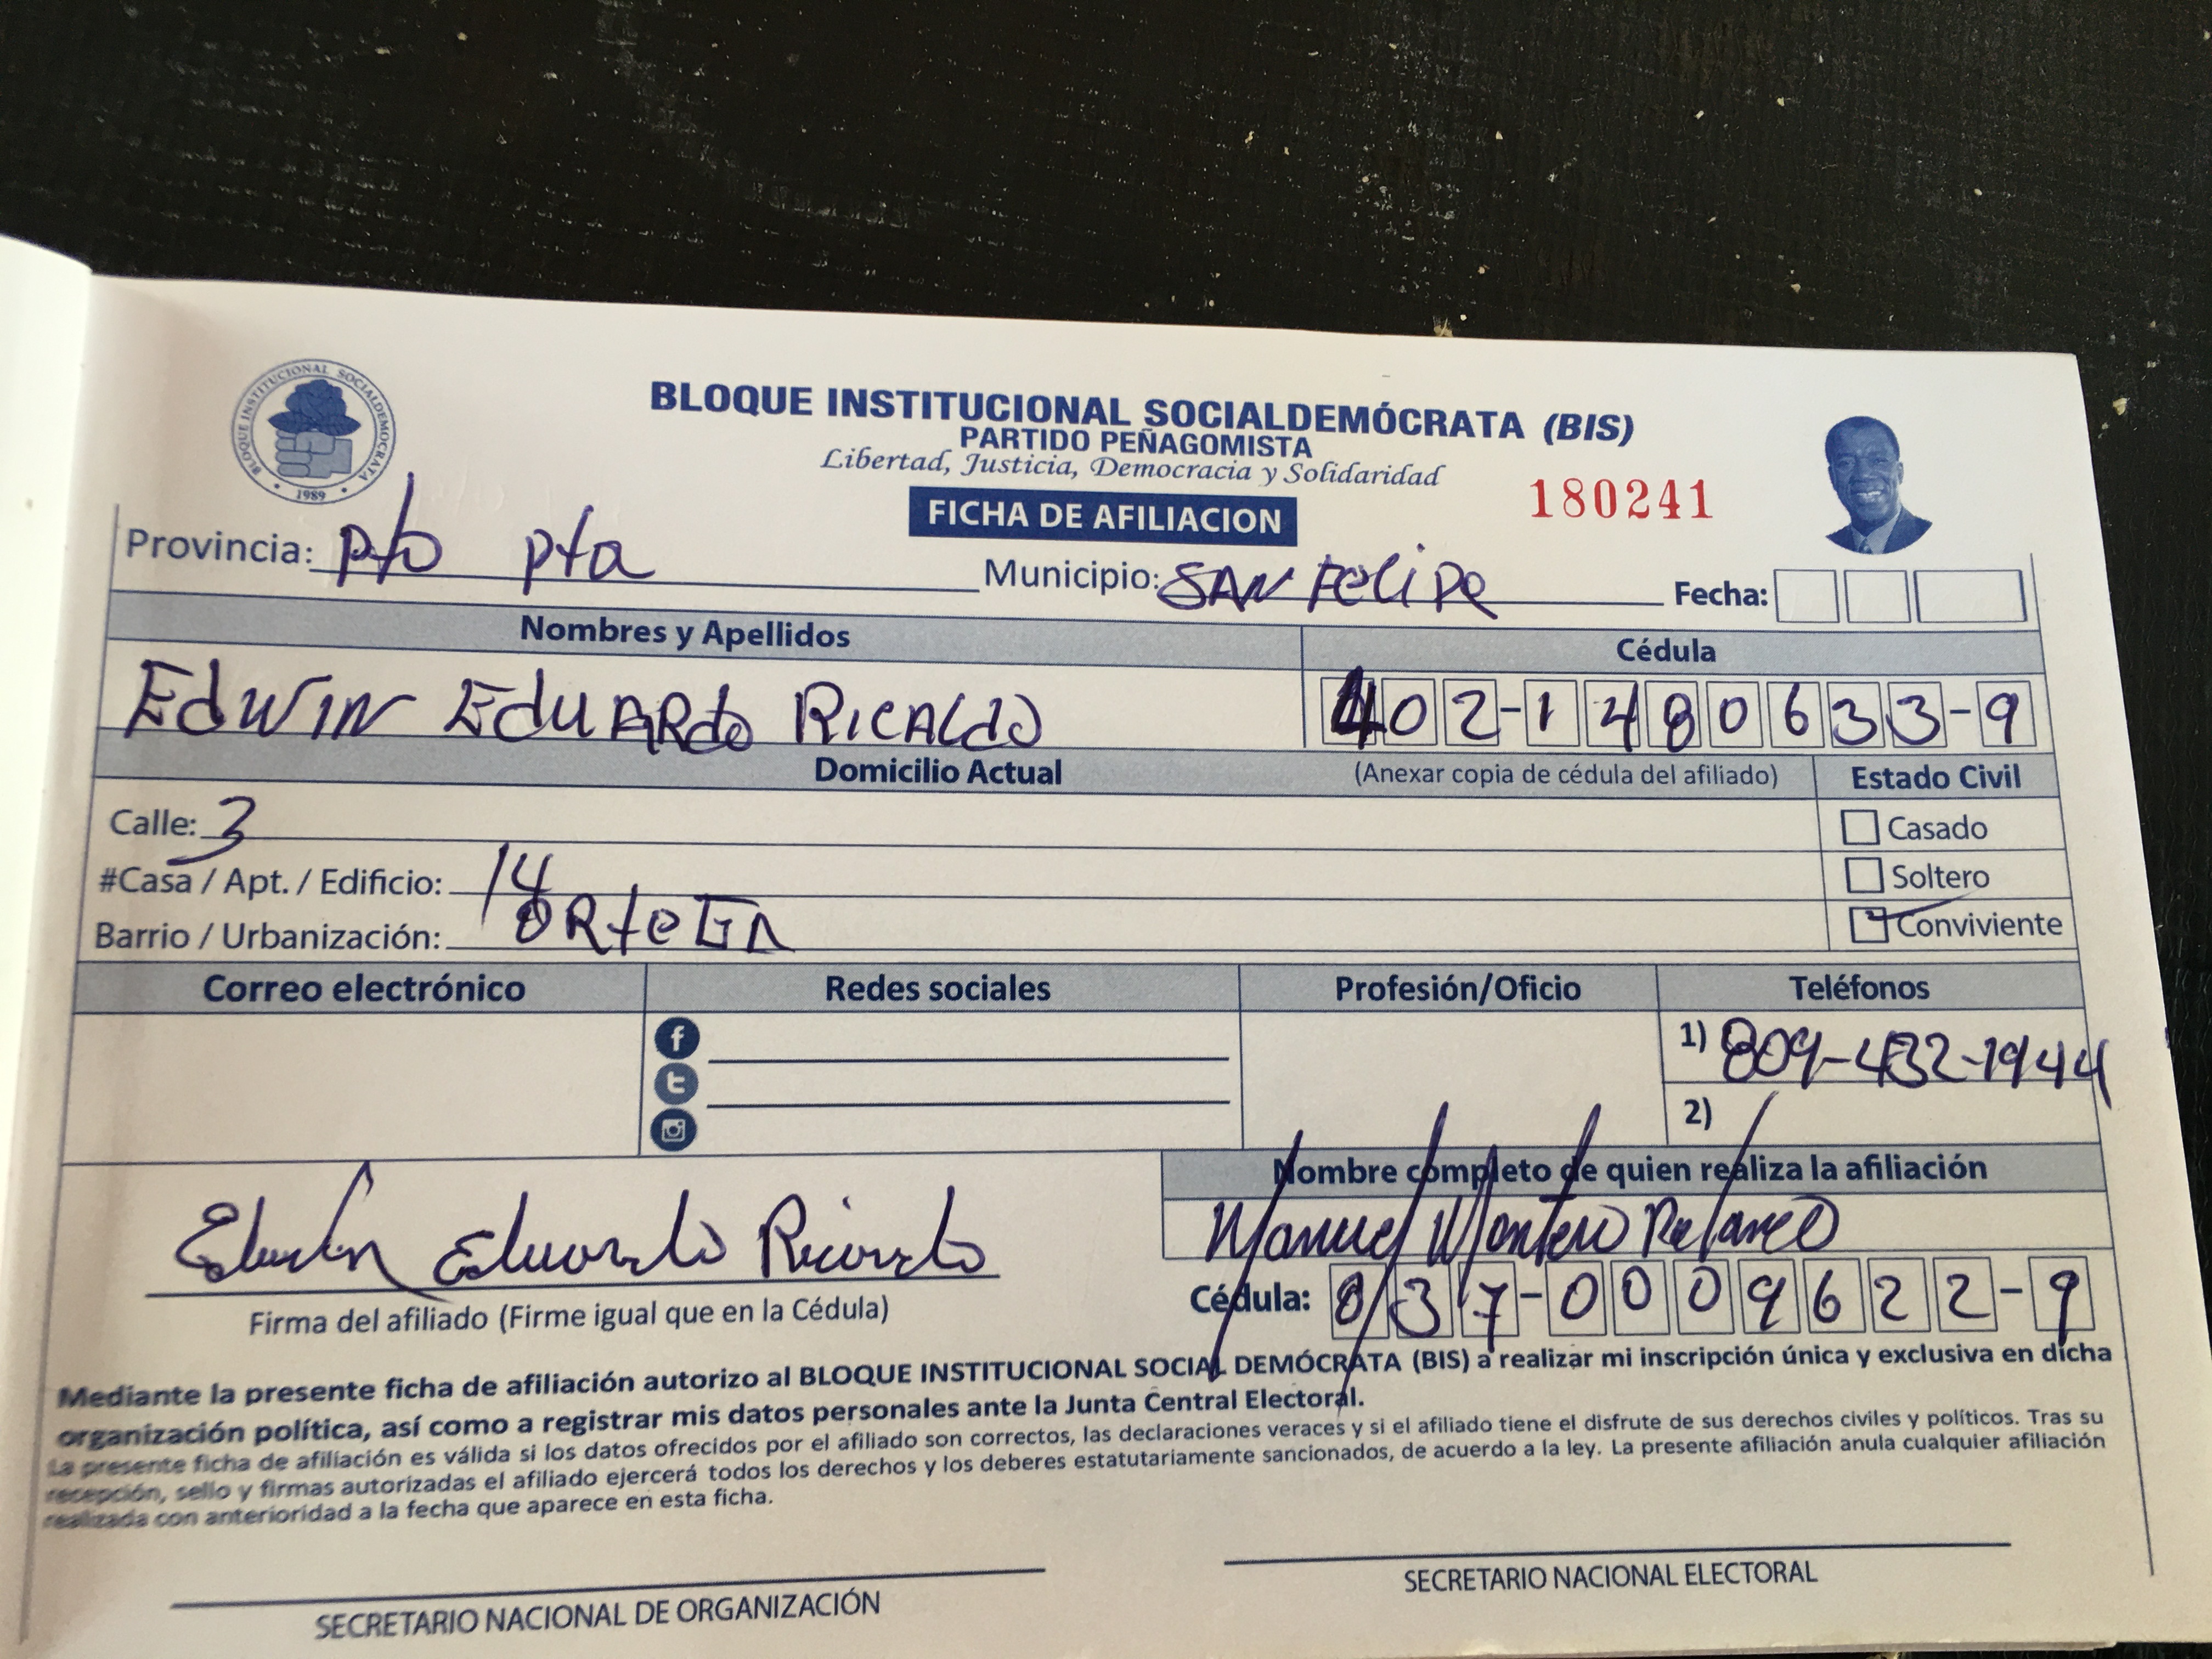 BLOQUE INSTITUCIONAL SOCIALDEMOCRATA
1989
BLOQUE INSTITUCIONAL SOCIALDEMÓCRATA (BIS)
PARTIDO PEÑAGOMISTA
Libertad, Justicia, Democracia y Solidaridad
FICHA DE AFILIACION
180241
Provincia: pto pta Municipio: SAN FELIPE Fecha:
Nombres y Apellidos Cédula
EdWIN EduARdo RICALdo 402-1480633-9
Domicilio Actual (Anexar copia de cédula del afiliado) Estado Civil
Calle: 3 Casado
#Casa / Apt. / Edificio: 14 Soltero
Barrio / Urbanización: ORTEGA Conviviente
Correo electrónico Redes sociales Profesión/Oficio Teléfonos
1) 809-432-1944
2)
Nombre completo de quien realiza la afiliación
Edwin Eduardo Ricardo Manuel Montero
Firma del afiliado (Firme igual que en la Cédula) Cédula: 037-0009622-9
Mediante la presente ficha de afiliación autorizo al BLOQUE INSTITUCIONAL SOCIAL DEMÓCRATA (BIS) a realizar mi inscripción única y exclusiva en dicha
organización política, así como a registrar mis datos personales ante la Junta Central Electoral.
La presente ficha de afiliación es válida si los datos ofrecidos por el afiliado son correctos, las declaraciones veraces y si el afiliado tiene el disfrute de sus derechos civiles y políticos. Tras su
recepción, sello y firmas autorizadas el afiliado ejercerá todos los derechos y los deberes estatutariamente sancionados, de acuerdo a la ley. La presente afiliación anula cualquier afiliación
realizada con anterioridad a la fecha que aparece en esta ficha.
SECRETARIO NACIONAL DE ORGANIZACIÓN SECRETARIO NACIONAL ELECTORAL